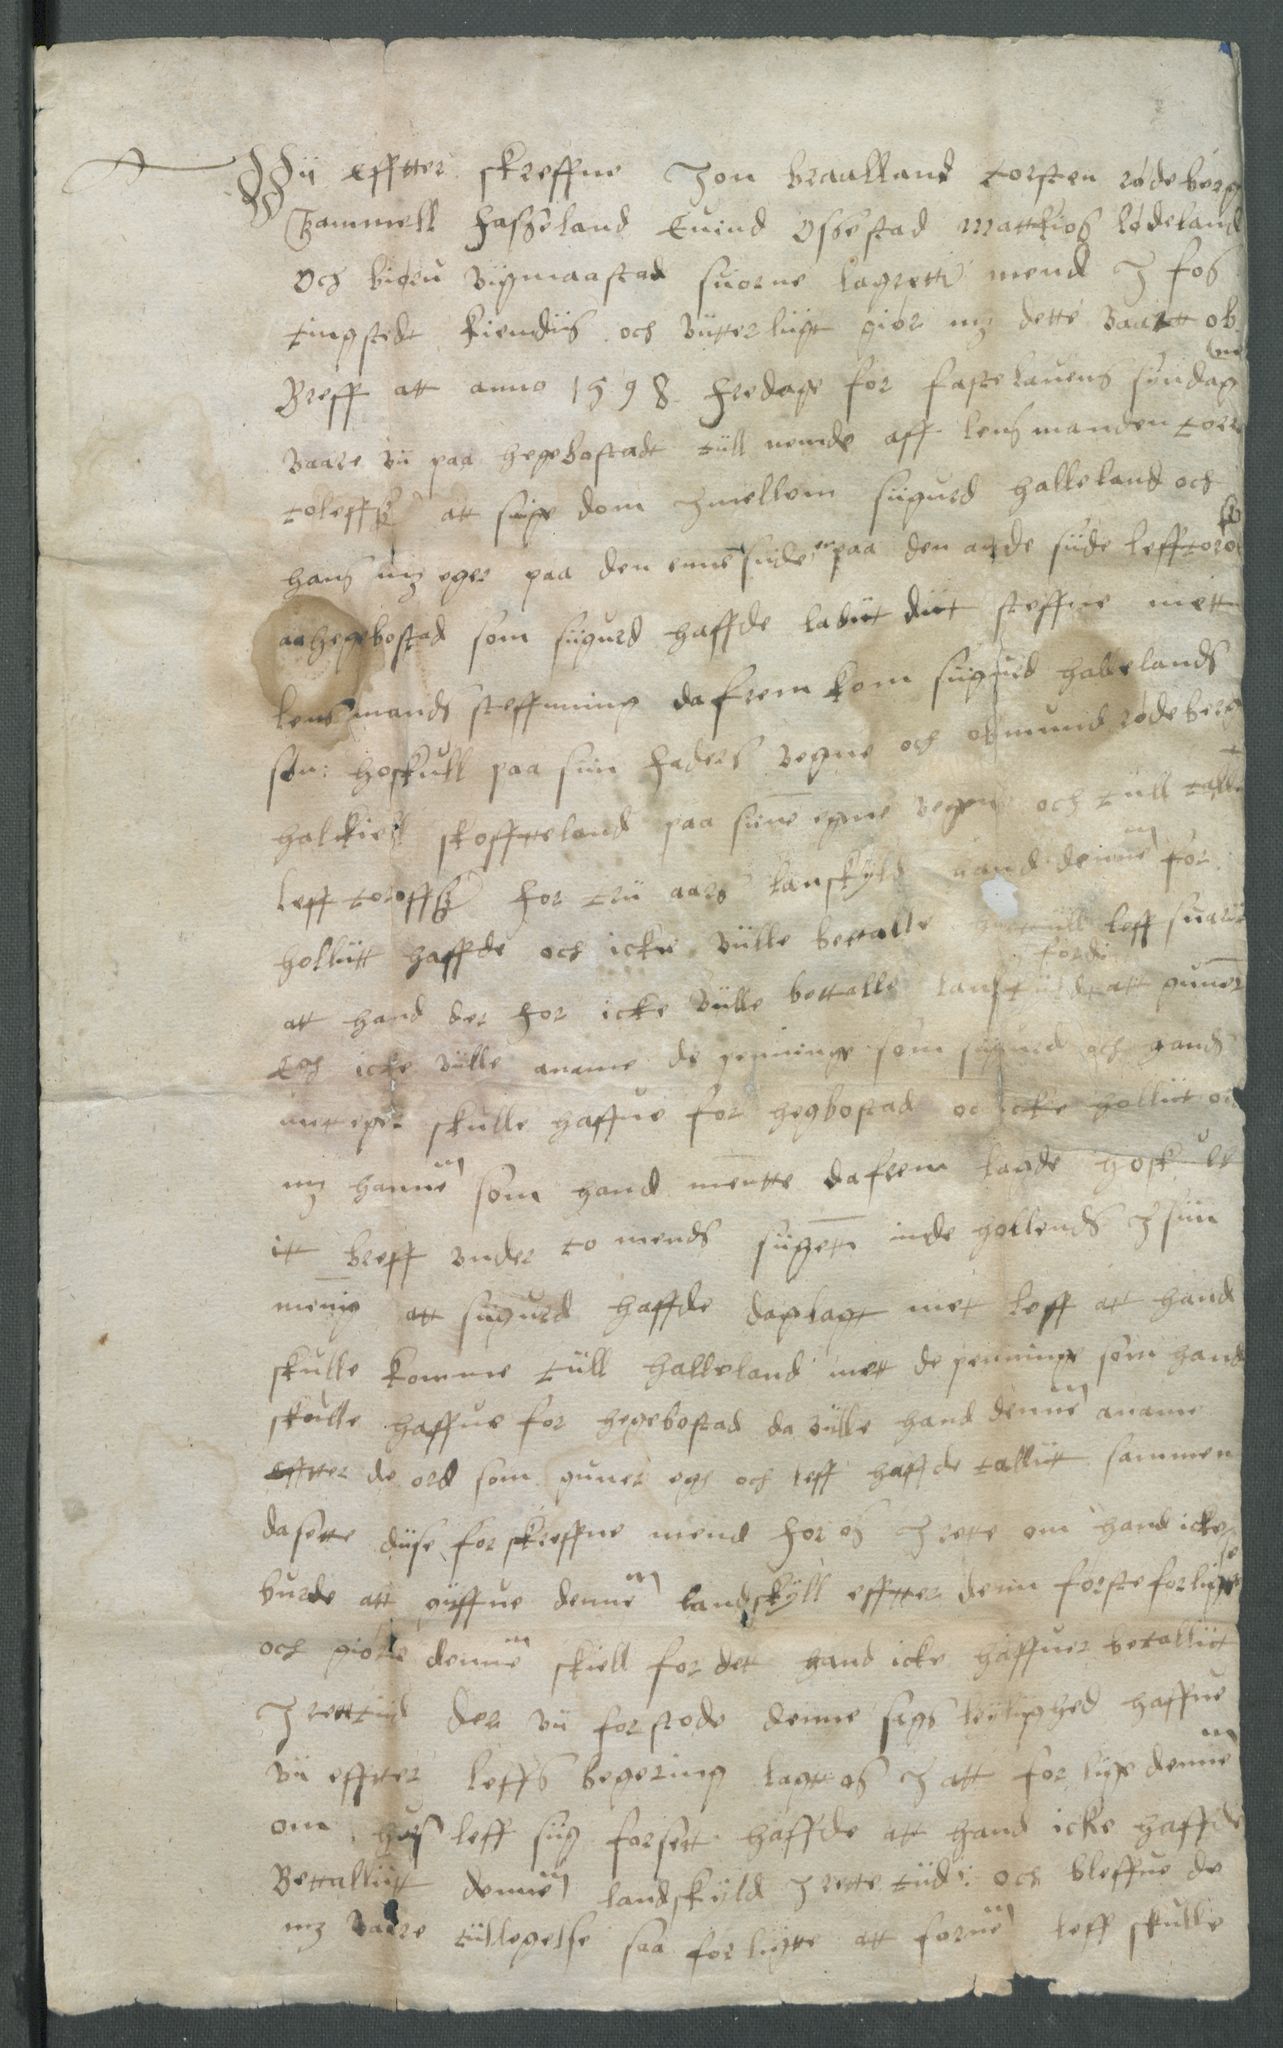 Wii efftter skreffne Jon braalland torsten rødeberg
Gammell hasseland Euind ossestad Mattios lødeland
och biørn vigmaastad suorne lagrette mend J fos
tingstedt kiendiis och vitterligt giør mz dette vaartt ob
ne
Breff att anno 1598 fredage for fastelauens søndag
vaare vii paa hegebostadt till nemde aff lensmanden torre
toleffß att siige dom Jmellom siigurd halleland och
hans mz eger paa den enne siide en paa den ande siide leff toroffß
aa hegebostad som siigurd haffde ladiit diit steffne mett
lensmands steffning da frem kom siigurd hallelands
søn: hoskull paa siin faders vegne och osmund rødeberg
halkiell skofftteland paa siine egne vegne och till talte
leff toroffß for trii aars lanskyld hand dennem for
holliitt haffde och icke viille bettalle leff suaride
fordi
att hand der for icke viille bettalle landskyld att guner
och icke viille aname de peninge som siigurd och hands
met eger skulle haffue for hegbostad oc icke holliit ord
mz hannem som hand mentte da frem lagde hoskull
itt breff vnder to mends siigett inde hollends J siin
menig att siigurd haffde daglagt met leff att hand
skulle komme till halleland mett de peninge som hand
skulle haffue for hegebostad da viille hand dennem aname
efftter de ord som guner och leff haffde talliit sammen
da sette diise for skreffne mend for os J rette om hand icke
burde att giiffue dennem landskyll efftter denn første forliigelse
och giøre dennem skiell for dett hand icke haffuer betalliit
J rettiid der vii forstode denne sags leyliighed haffue
vii effter leffs begering lagt os J att for liige dennem
om huis leff siig forsett haffde att hand icke haffde
Bettalliitt dennem landskyld J rette tiide och bleffue de
mz vaare tiillegelse saa forliigtte att fornem leff skulle